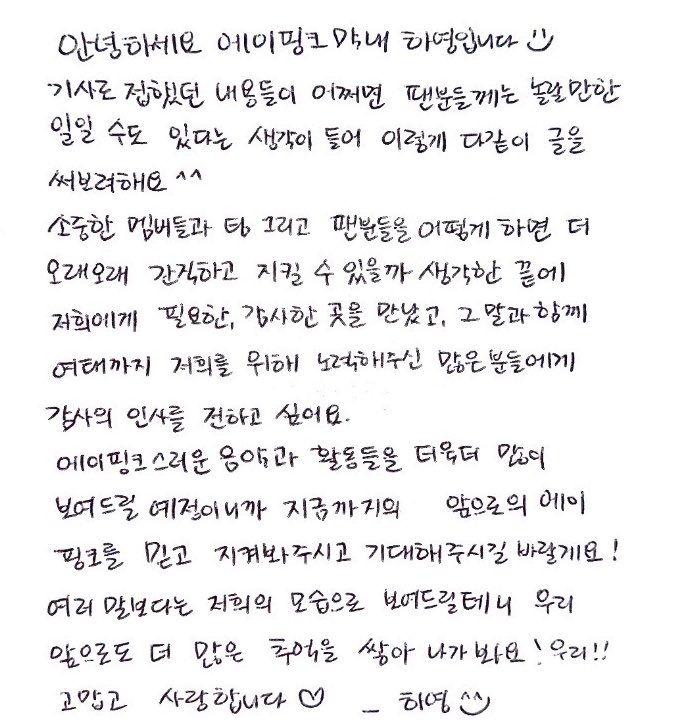 안녕하세요 에이핑크 막내 하영입니다
기사로 접했던 내용들이 어쩌면 팬분들께는 놀랄만한
일일 수도 있다는 생각이 들어 이렇게 다같이 글을
써보려해요 ^^
소중한 멤버들과 팀 그리고 팬분들을 어떻게 하면 더
오래오래 간직하고 지킬 수 있을까 생각한 끝에
저희에게 필요한, 감사한 곳을 만났고, 그 말과 함께
여태까지 저희를 위해 노력해주신 많은분들에게
감사의 인사를 전하고 싶어요.
에이핑크스러운 음악과 활동들을 더욱더 많이
보여드릴 예정이니까 지금까지의 앞으로의 에이
핑크를 믿고 지켜봐주시고 기대해주시길 바랄게요!
여러 말보다는 저희의 모습으로 보여드릴테니 우리
앞으로도 더 많은 추억을 쌓아 나가봐요! 우리!!
고맙고 사랑합니다 ♡ _ 하영 ^^